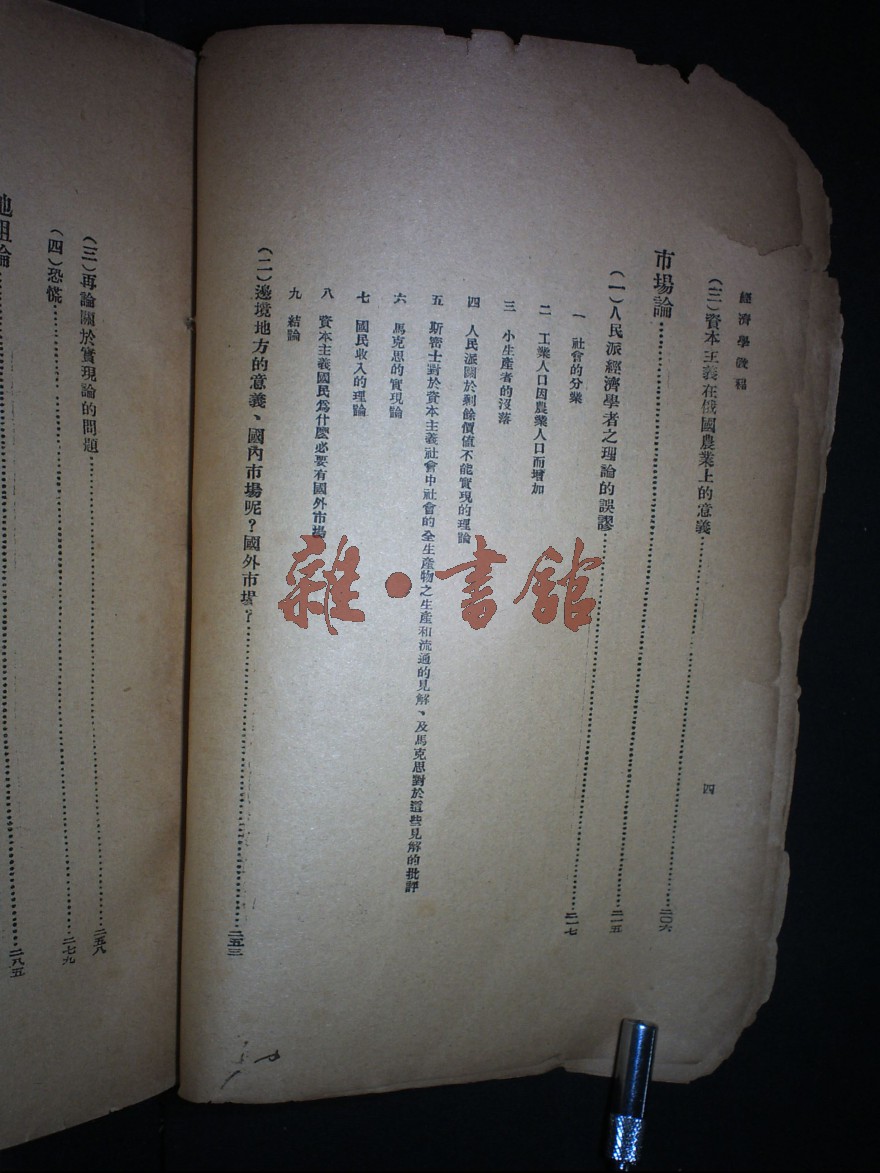 經濟學教程
四
(三)資本主義在俄國農業上的意義……二〇六
市場論……二一五
(一)人民派經濟學者之理論的誤謬……二一七
一 社會的分業
二 工業人口因農業人口而增加
三 小生產者的沒落
四 人民派關於剩餘價值不能實現的理論
五 斯密士對於資本主義社會中社會的全生產物之生產和流通的見解、及馬克思對於這些見解的批評
六 馬克思的實現論
七 國民收入的理論
八 資本主義國民爲什麽必要有國外市場
九 結論
(二)邊境地方的意義、國內市場呢?國外市場?……二五三
(三)再論關於實現論的問題……二五八
(四)恐慌……二七九
地租論……二八五
雜·書館